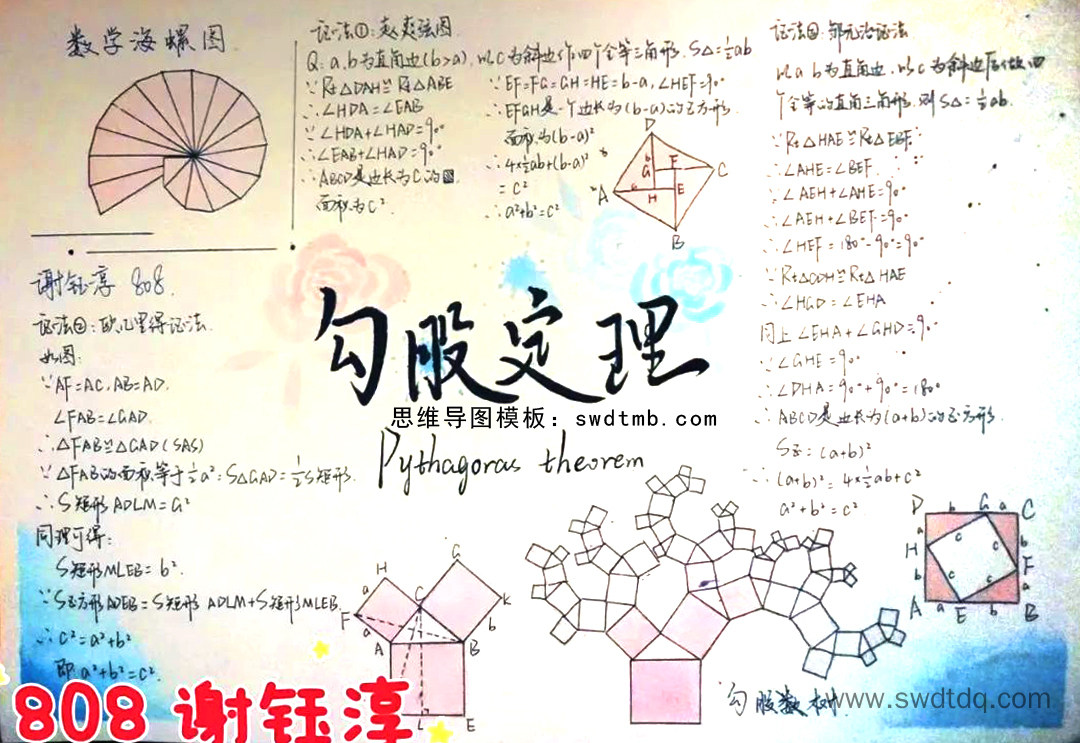 数学海螺图.
证法①:赵爽弦图.
Q:a,b为直角边(b>a),以C为斜边作四个全等三角形.S△=½ab
∵Rt△DAH≌Rt△ABE
∴∠HDA=∠EAB
∵∠HDA+∠HAD=90°
∴∠EAB+∠HAD=90°
∴ABCD是边长为C的
面积为C².
∵EF=FG=GH=HE=b-a,∠HEF=90°
∴EFGH是一个边长为(b-a)的正方形.
面积为(b-a)²
∴4×½ab+(b-a)²
=c²
∴a²+b²=c²
D
b
F
G
C
A
c
E
H
B
谢钰淳 808.
证法②:欧几里得证法.
如图:
∵AF=AC,AB=AD.
∠FAB=∠GAD.
∴△FAB≌△GAD(SAS)
∵△FAB的面积等于½a²:S△GAD=½S矩形.
∴S矩形ADLM=a²
同理可得:
S矩形MLEB=b².
∵S正方形ADEB=S矩形 ADLM+S矩形MLEB.
∴c²=a²+b²
即 a²+b²=c².
勾股定理
思维导图模板：swdtmb.com
Pythagoras theorem
G
H
a
C
F
K
a
b
A
B
L
E
证法③ 邹元治证法
以a b为直角边,以c为斜边后做四
个全等的直角三角形,则S△=½ab.
∵Rt△HAE≌Rt△EBF
∴∠AHE=∠BEF
∵∠AEH+∠AHE=90°
∴∠AEH+∠BEF=90°
∴∠HEF=180°-90°=90°
∵Rt△GDH≌Rt△HAE
∴∠HGD=∠EHA
同上 ∠EHA+∠GHD=90°
∵∠GHE=90°
∴∠DHA=90°+90°=180°
∴ABCD是边长为(a+b)的正方形.
S正:(a+b)²
∴(a+b)²=4×½ab+c²
a²+b²=c²
D b G a C
a c b
H c F
b c c a
A a E b B
勾股数树.
www.swdtdq.com
808 谢钰淳